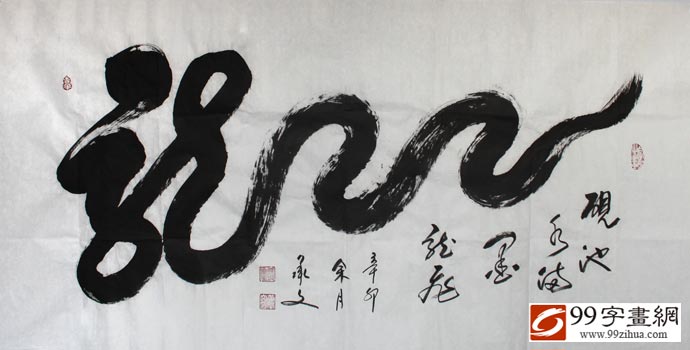 龍
硯池
水滿
墨
龍飛
辛卯
余月
承文
99字畫網
www.99zihua.com